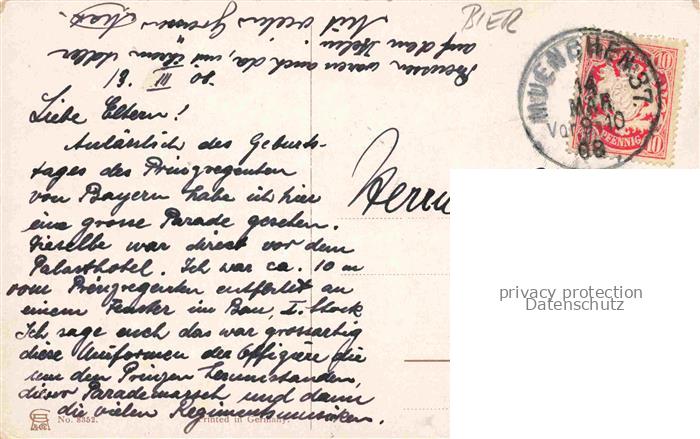 BIER
MUENCHEN 37.
14
MÄR.
Vor. 9-10
08
10
10
PFENNIG
10
13. III 08.
Liebe Eltern!
Anlässlich des Geburts-
tages des Prinzregenten
von Bayern habe ich hier
eine grosse Parade gesehen.
Dieselbe war direct vor dem
Palasthotel. Ich war ca. 10 m
vom Prinzregenten entfernt an
einem Fenster im Bau, I. Stock
Ich sage euch das war grossartig
diese Uniformen der Offiziere die
um den Prinzen herumstanden,
dieser Parademarsch und dann
die vielen Regimentsmusiken.
Preussen waren auch da, mit ihrem Adler
auf dem Helm
Mit vielen Grüssen
Herrn
privacy protection
Datenschutz
No. 8352.
Printed in Germany.